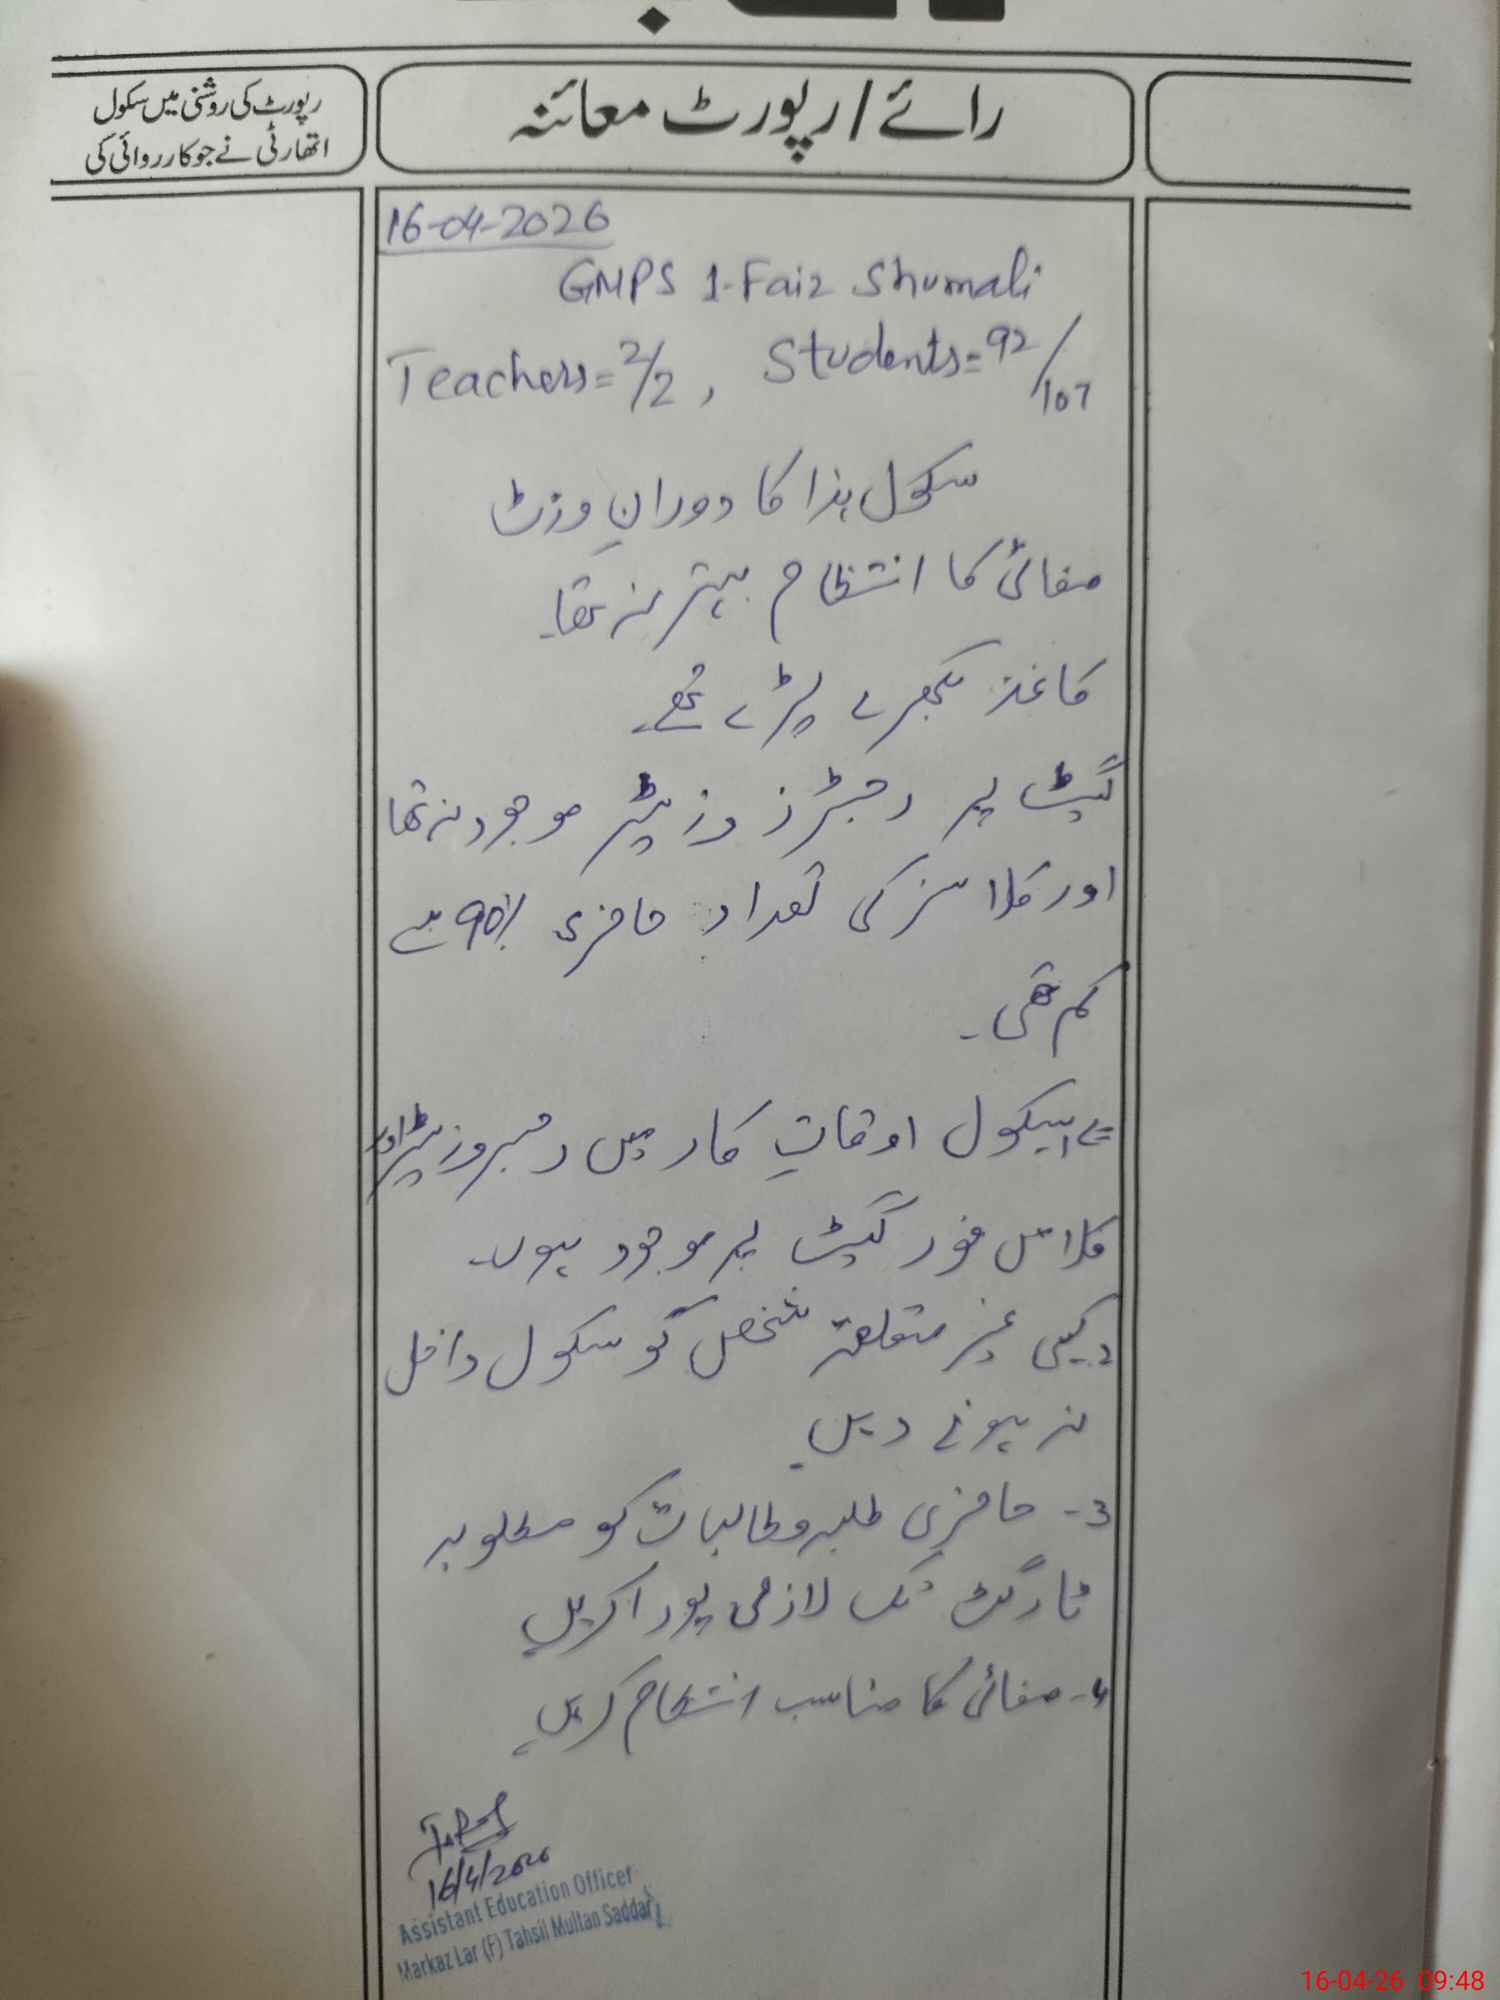 رائے / رپورٹ معائنہ
رپورٹ کی روشنی میں سکول
اتھارٹی نے جو کارروائی کی
16-04-2026
GMPS 1-Faiz Shumali
Teachers = 2/2 , Students = 92/107
سکول ہذا کا دورانِ وزٹ
صفائی کا انتظام بہتر نہ تھا۔
کاغذ بکھرے پڑے تھے۔
گیٹ پر رجسٹرز وزیٹر موجود نہ تھا
اور کلاسز کی تعداد حاضری 90% سے
کم تھی۔
سکول اوقاتِ کار میں رجسٹر وزیٹر اور
کلاس فور گیٹ پر موجود ہوں۔
کسی غیر متعلقہ شخص کو سکول داخل
نہ ہونے دیں۔
3- حاضری طلبہ و طالبات کو مطلوبہ
ٹارگٹ تک لازمی پورا کریں۔
4- صفائی کا مناسب انتظام کریں۔
16/4/2026
Assistant Education Officer
Markaz Lar (F) Tahsil Multan Saddar
16-04-26 09:48